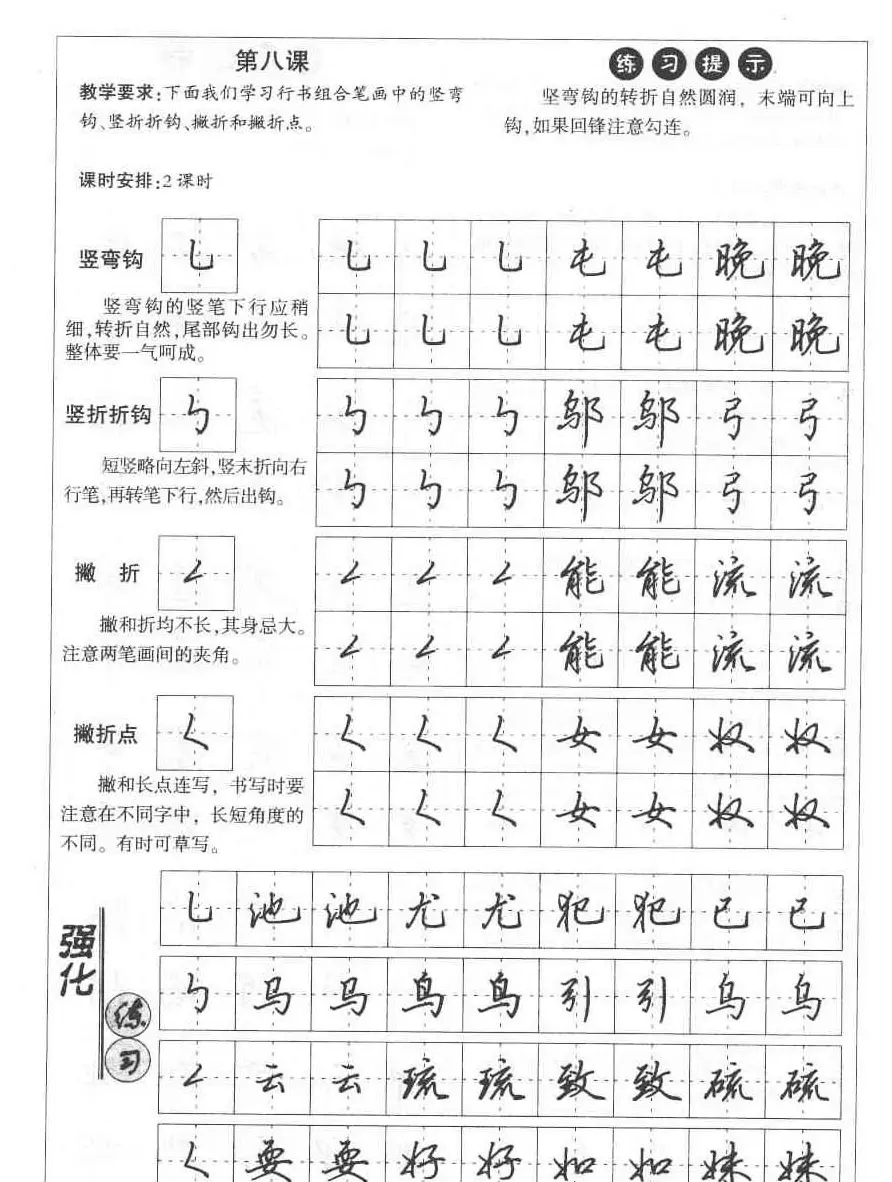 第八课
教学要求:下面我们学习行书组合笔画中的竖弯
钩、竖折折钩、撇折和撇折点。
课时安排:2课时
练习提示
竖弯钩的转折自然圆润，末端可向上
钩,如果回锋注意勾连。
竖弯钩 乚 乚 乚 乚 屯 屯 晚 晚
竖弯钩的竖笔下行应稍
细,转折自然,尾部钩出勿长。
整体要一气呵成。
乚 乚 乚 屯 屯 晚 晚
竖折折钩 ㄣ ㄣ ㄣ ㄣ 邬 邬 弓 弓
短竖略向左斜,竖末折向右
行笔,再转笔下行,然后出钩。
ㄣ ㄣ ㄣ 邬 邬 弓 弓
撇 折 𠃋 𠃋 𠃋 𠃋 能 能 流 流
撇和折均不长,其身忌大。
注意两笔画间的夹角。
𠃋 𠃋 𠃋 能 能 流 流
撇折点 𡿨 𡿨 𡿨 𡿨 女 女 奴 奴
撇和长点连写，书写时要
注意在不同字中，长短角度的
不同。有时可草写。
𡿨 𡿨 𡿨 女 女 奴 奴
强化
练习
乚 池 池 尤 尤 犯 犯 已 已
ㄣ 马 马 鸟 鸟 引 引 乌 乌
𠃋 云 云 琉 琉 致 致 硫 硫
𡿨 要 要 好 好 如 如 妹 妹